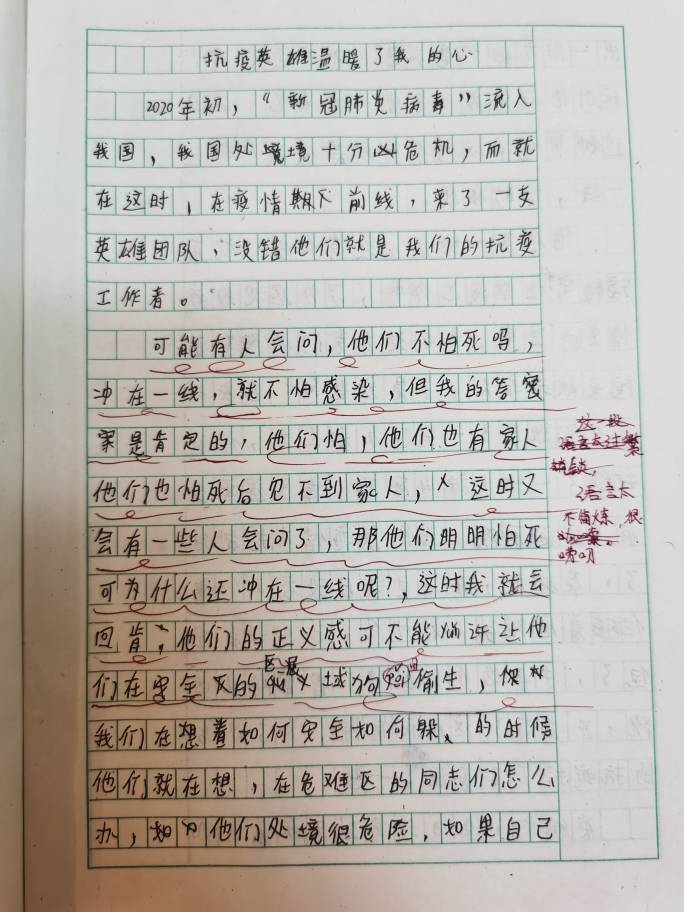 抗疫英雄温暖了我的心
2020年初，“新冠肺炎病毒”流入
我国，我国处境十分危机，而就
在这时，在疫情期下前线，来了一支
英雄团队，没错他们就是我们的抗疫
工作者。
可能有人会问，他们不怕死吗，
冲在一线，就不怕感染，但我的答案
是肯定的，他们怕，他们也有家人
他们也怕死后见不到家人，这时又
会有一些人会问了，那他们明明怕死
可为什么还冲在一线呢?，这时我就会
回答，他们的正义感可不能允许让他
们在安全区的区域苟且偷生，
我们在想着如何安全如何躲、的时候
他们就在想，在危难区的同志们怎么
办，如他们处境很危险，如果自己
这一段
语言太过繁
语言太
不简炼，很
啰叨